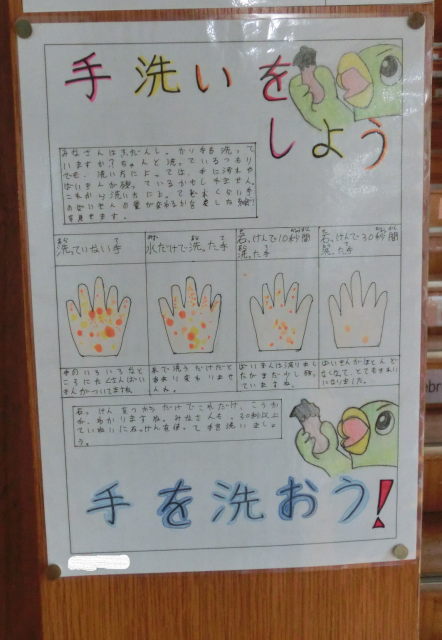 手洗いを
しよう
みなさんはふだんしっかり手を洗って
いますか？ちゃんと洗っているつもり
でも、洗い方によっては、手に汚れや
ばいきんが残っているかもしれません。
これから洗い方によって
のばいきんの量が変わるか
洗っていない手
水だけで洗った手
石けんで10秒間
洗った手
石けんで30秒間
洗った手
手のいろいろなと
ころにたくさんばい
きんがついてますね
水で洗うだけだと
あまり変わりませ
んね。
ばいきんは減りまし
たがまだ少し残っ
ていますね。
ばいきんがほとんど
なくなって、とてもきれい
になりました。
石けんを
わかりますね。みなさんも、30秒以上
ていねいに石けんを使って手を洗いましょ
う。
手を洗おう！